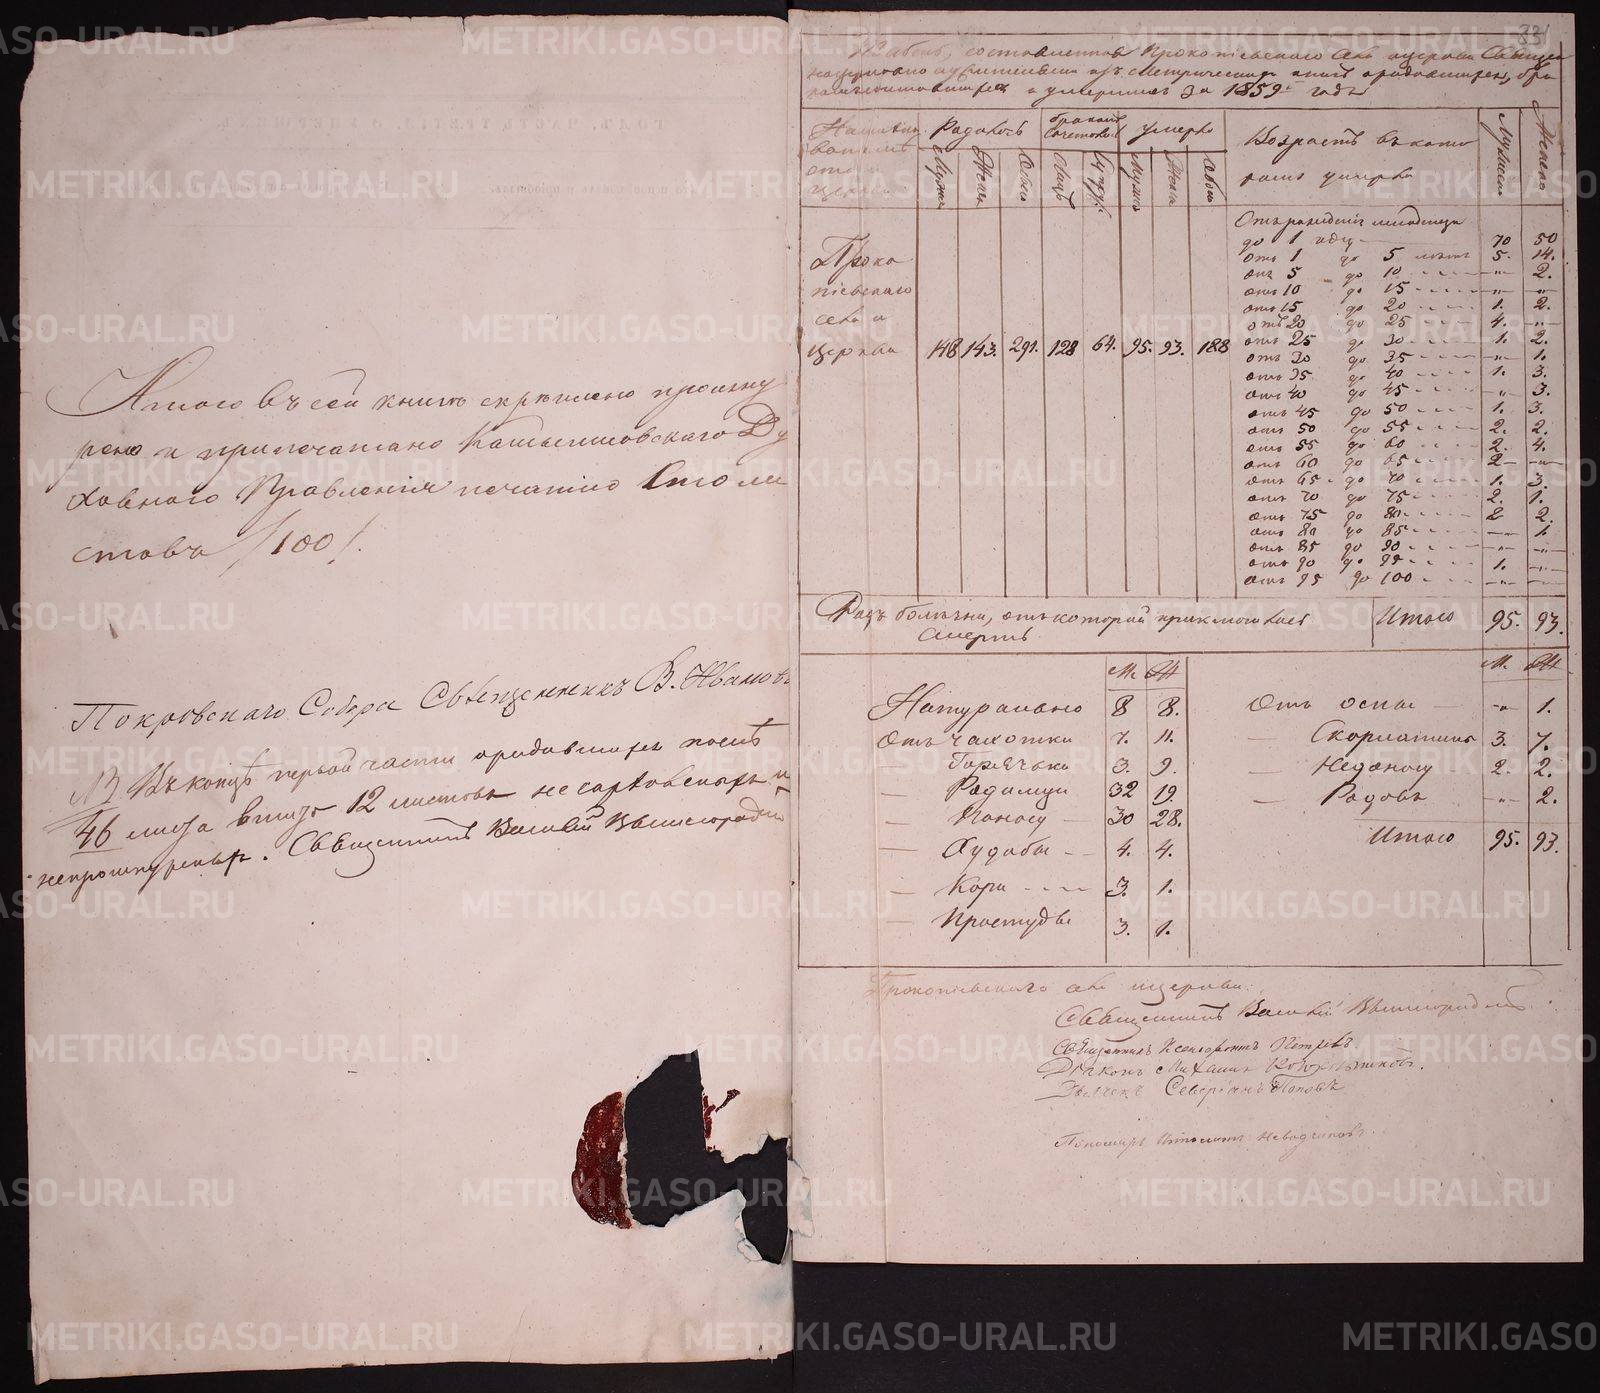 А всего въ сей книгѣ скрѣплено прошну
ровано и припечатано Камышловскаго Ду
ховнаго Правленія печатью Сто ли
стовъ /100/.
Покровскаго Собора Священникъ В. Ивановъ
NB Въ концѣ первой части родившихся послѣ
46 листа вшито 12 листовъ не
непрошнурены. Священникъ Василій
331
Табель, составленная Прокопіевскаго села церкви Священно
церковно служителями изъ метрическихъ книгъ о родившихся, бра
комъ сочетавшихся и умершихъ за 1859 годъ
Наимено
ваніе
села и
церкви
Родилось
бракомъ
сочетовано
умерло
Возрастъ въ кото
ромъ умерло
Мужеска
Женска
Мужск
Женск
Обоего
Лицъ
Супруж.
Мужск
Женск
Обоего
Проко
піевскаго
села и
церкви
148
143.
291.
128
64.
95.
93.
188
Отъ рожденія младенца
до 1 года 70 50
отъ 1 до 5 лѣтъ 5. 14.
отъ 5 до 10 -"- 2.
отъ 10 до 15 -"- -"-
отъ 15 до 20 1. 2.
отъ 20 до 25 4. -"-
отъ 25 до 30 1. 2.
отъ 30 до 35 -"- 1.
отъ 35 до 40 1. 3.
отъ 40 до 45 -"- 3.
отъ 45 до 50 1. 3.
отъ 50 до 55 2. 2.
отъ 55 до 60 2. 4.
отъ 60 до 65 2 -"-
отъ 65 до 70 1. 3.
отъ 70 до 75 2. 1.
отъ 75 до 80 2 2.
отъ 80 до 85 -"- 1.
отъ 85 до 90 -"- -"-
отъ 90 до 95 1. -"-
отъ 95 до 100 -"- -"-
Родъ болѣзни, отъ которой приключилась
смерть
Итого 95. 93.
М. Ж
М. Ж
Натурально 8 8.
Отъ чахотки 7. 11.
— Горячьки 3. 9.
— Родимца 32 19.
— Поносу 30 28.
— Худобы 4. 4.
— Кори 3. 1.
— Простуды 3. 1.
Отъ оспы -"- 1.
— Скорлатины 3. 7.
— Недоносу 2. 2.
— Родовъ -"- 2.
Итого 95. 93.
Прокопіевскаго села церкви:
Священникъ Василій
Священникъ Ксенофонтъ Петровъ
Діаконъ Михаилъ
Дьячекъ Северіанъ Поповъ
Пономарь
METRIKI.GASO-URAL.RU